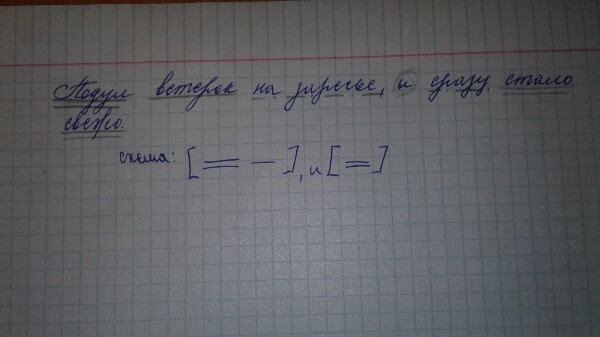 Подул ветерок на заречье, и сразу стало
свежо.
схема: [══ —], и [═]